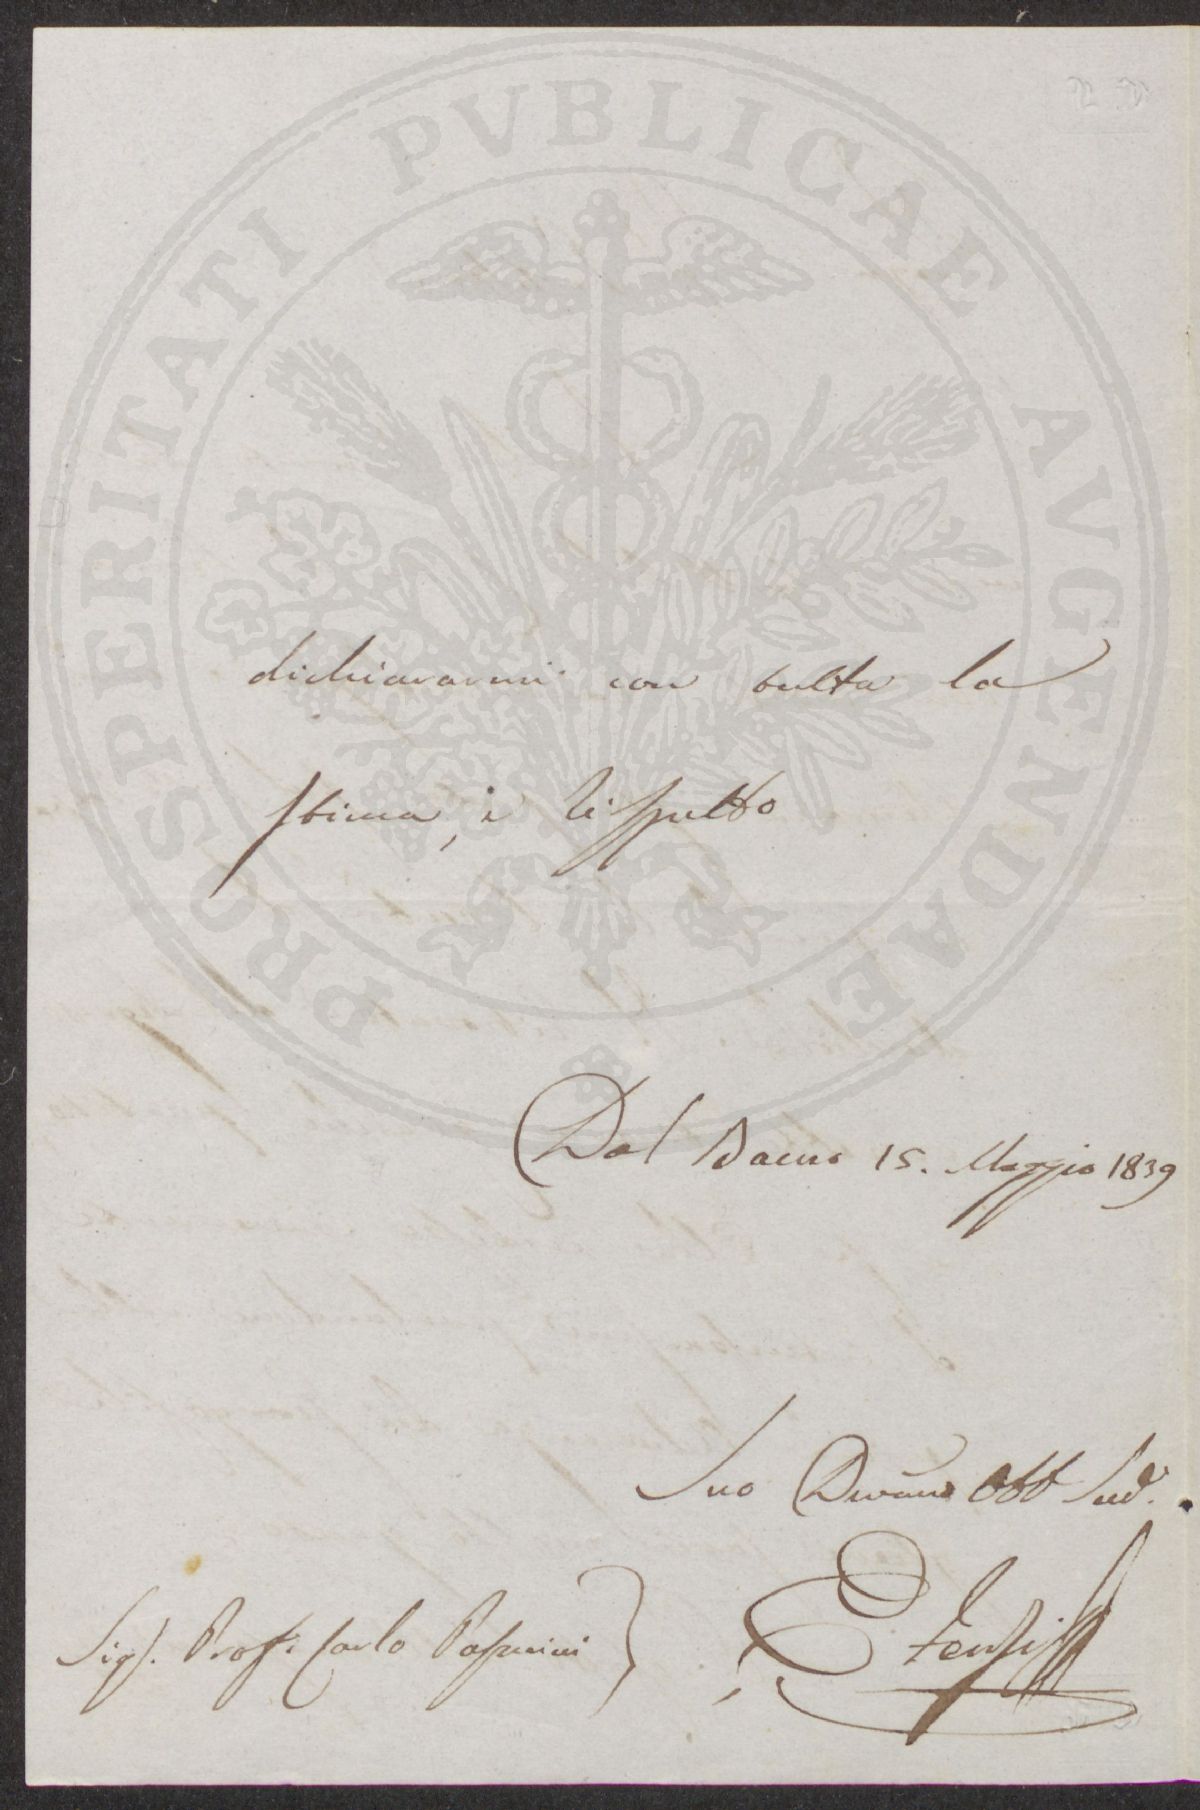 PROSPERITATI PVBLICAE AVGENDAE
dichiararmi con tutta la
stima, e rispetto
Dal Bacino 15. Maggio 1839
Suo Devmo Obb Sud.
Sigr. Prof. Carlo Passerini